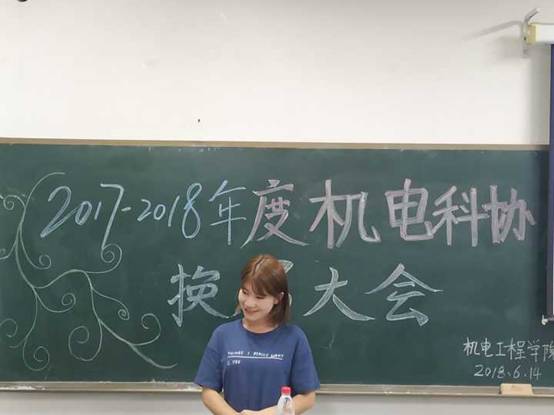 2017-2018年度机电科协
换 大会
机电工程学院
2018.6.14